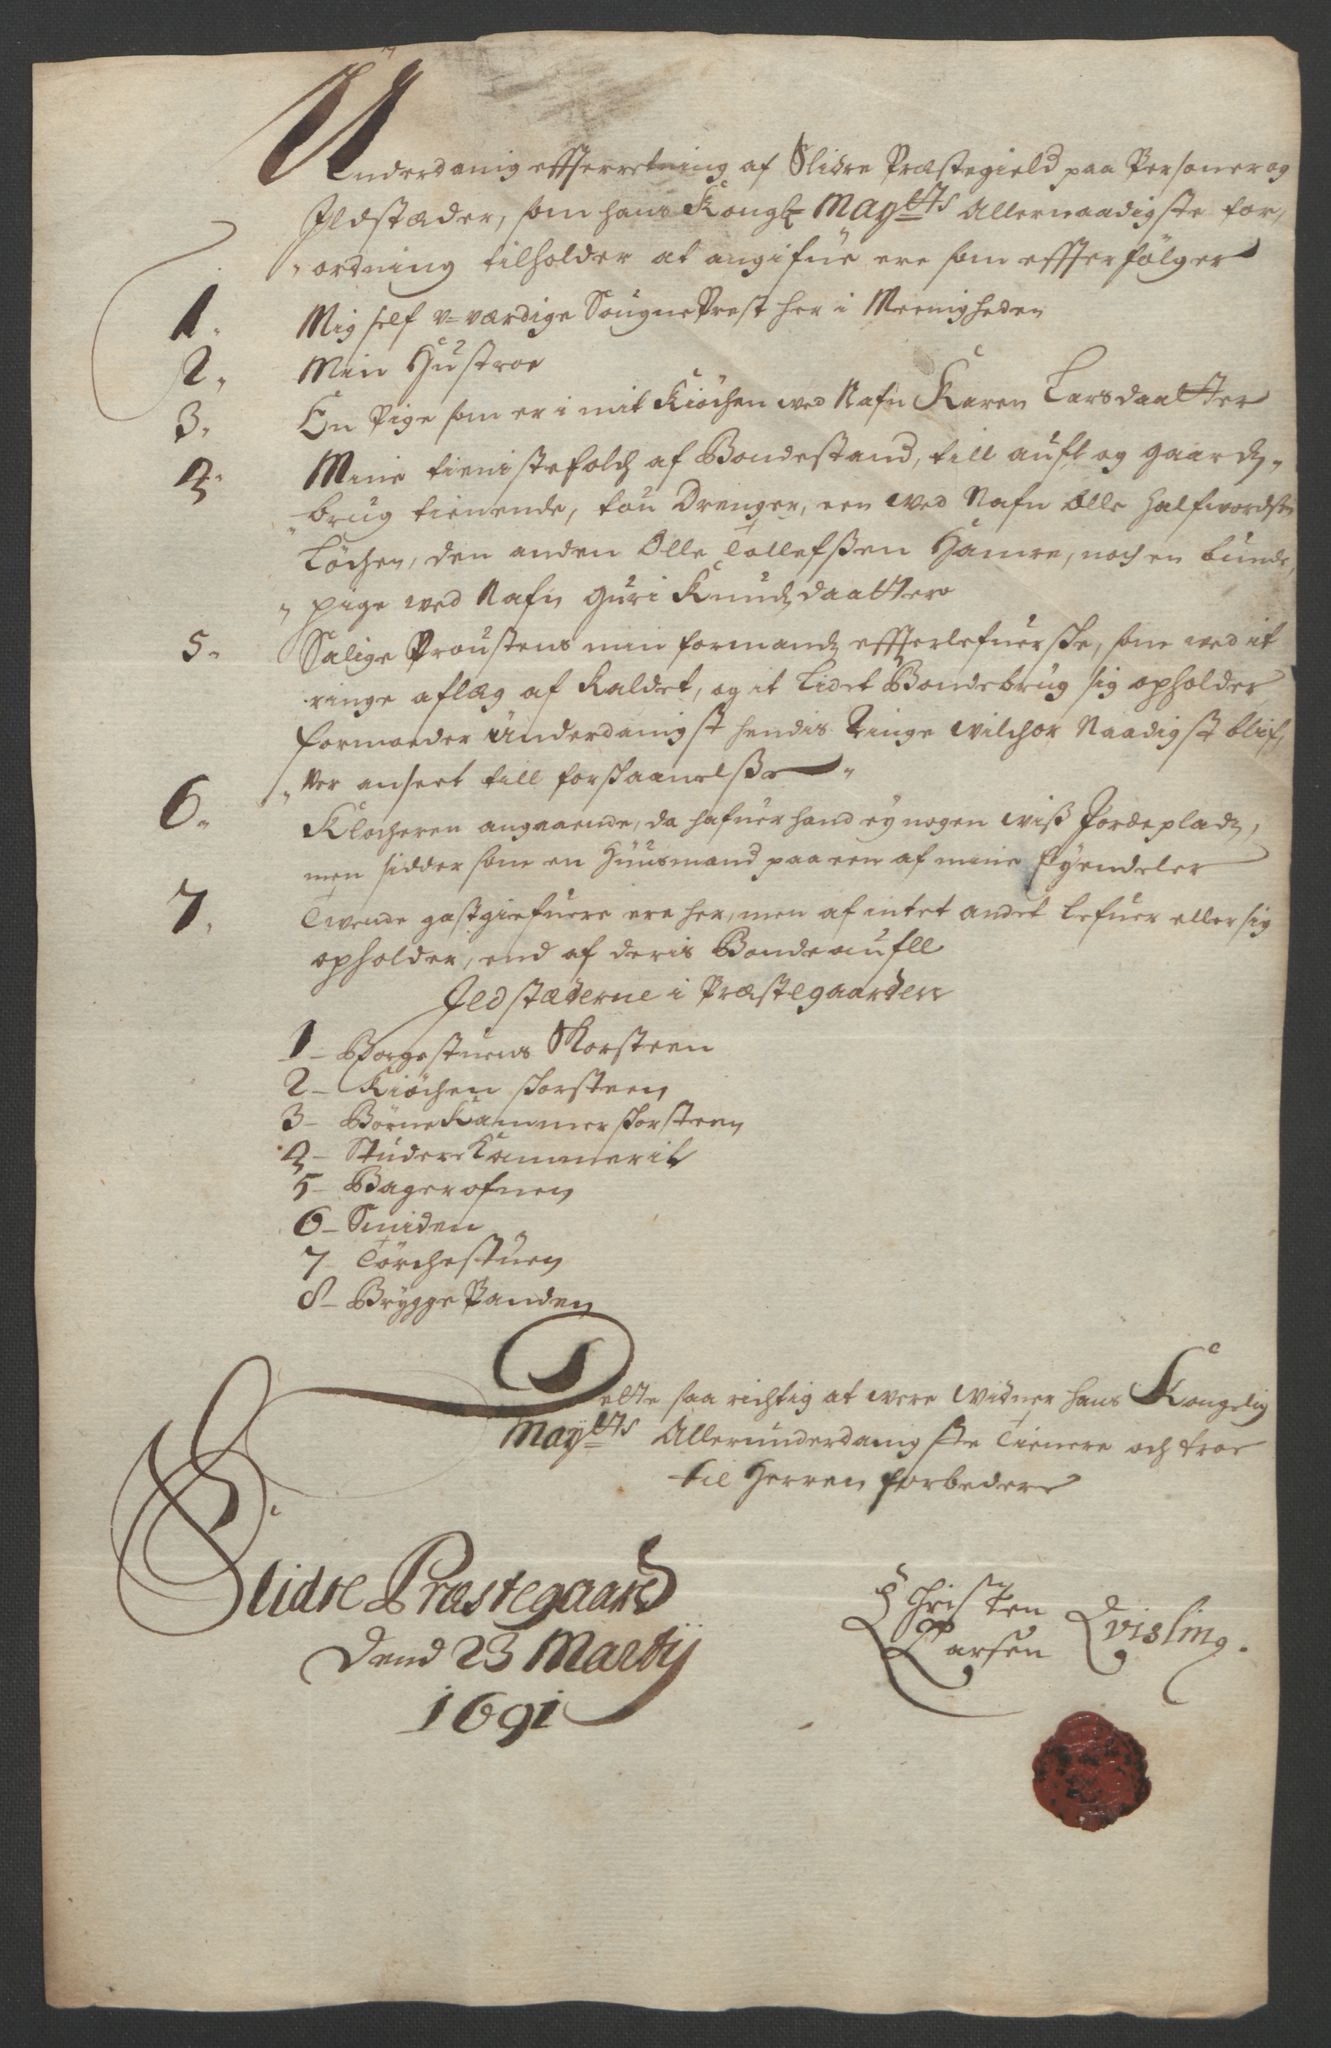 Underdanig effterretning af Slidre Præstegield paa Personer og
Ildstæder, som hans Kongl Mayltts Allernaadigste for,
ordning tilholder at angifüe ere som effterfölger
1. Mig self v=værdige SougnePrest her i Meenigheden
2. Min Hustroe
3. En Pige som er i mit Kiöchen ved Nafn Karen Larsdaatter
4. Mine tienistefolch af Bondestand, till aufl og gaardz
brug tienende, tou Drenger, een ved Nafn Olle Halfwordsen
Löchen, den anden Olle Tollefsßen Hamre, noch en bunde,
pige ved Nafn Guri Knudzdaatter
5. Salige Proustens min formandz effterlefuerske, som ved it
ringe aflæg af Kaldet, og it Lidet Bondebrug sig opholder
formoeder Underdanigst hendis Ringe Wilchor Naadigst blif,
ver anseet till forskaanelße
6. Klocheren angaaende, da hafuer hand ey nogen wiß Jordepladz,
men sidder som en Huusmand paa een af mine Eyendeler
7. Tvende gastgiefuere ere her, men af intet andet Lefuer eller sig
opholder, end af deris Bondeaufll
Ildstæderne i Præstegaarden
1 - Borgestuens Skorsteen
2 - Kiöchen skorsteen
3 - BörneKammer skorsteen
4 - StudereKammerit
5 - Bagerofnen
6 - Smiden
7 - Törchestuen
8 - BryggePanden
Dette saa richtig at were Widner hans Kongelig
Mayltts Allerunderdanigste Tienere och troe
til Herren forbedere
Slidre Præstegaard
Dend 23 Martij
1691
Christen
Larsen Qvisling.